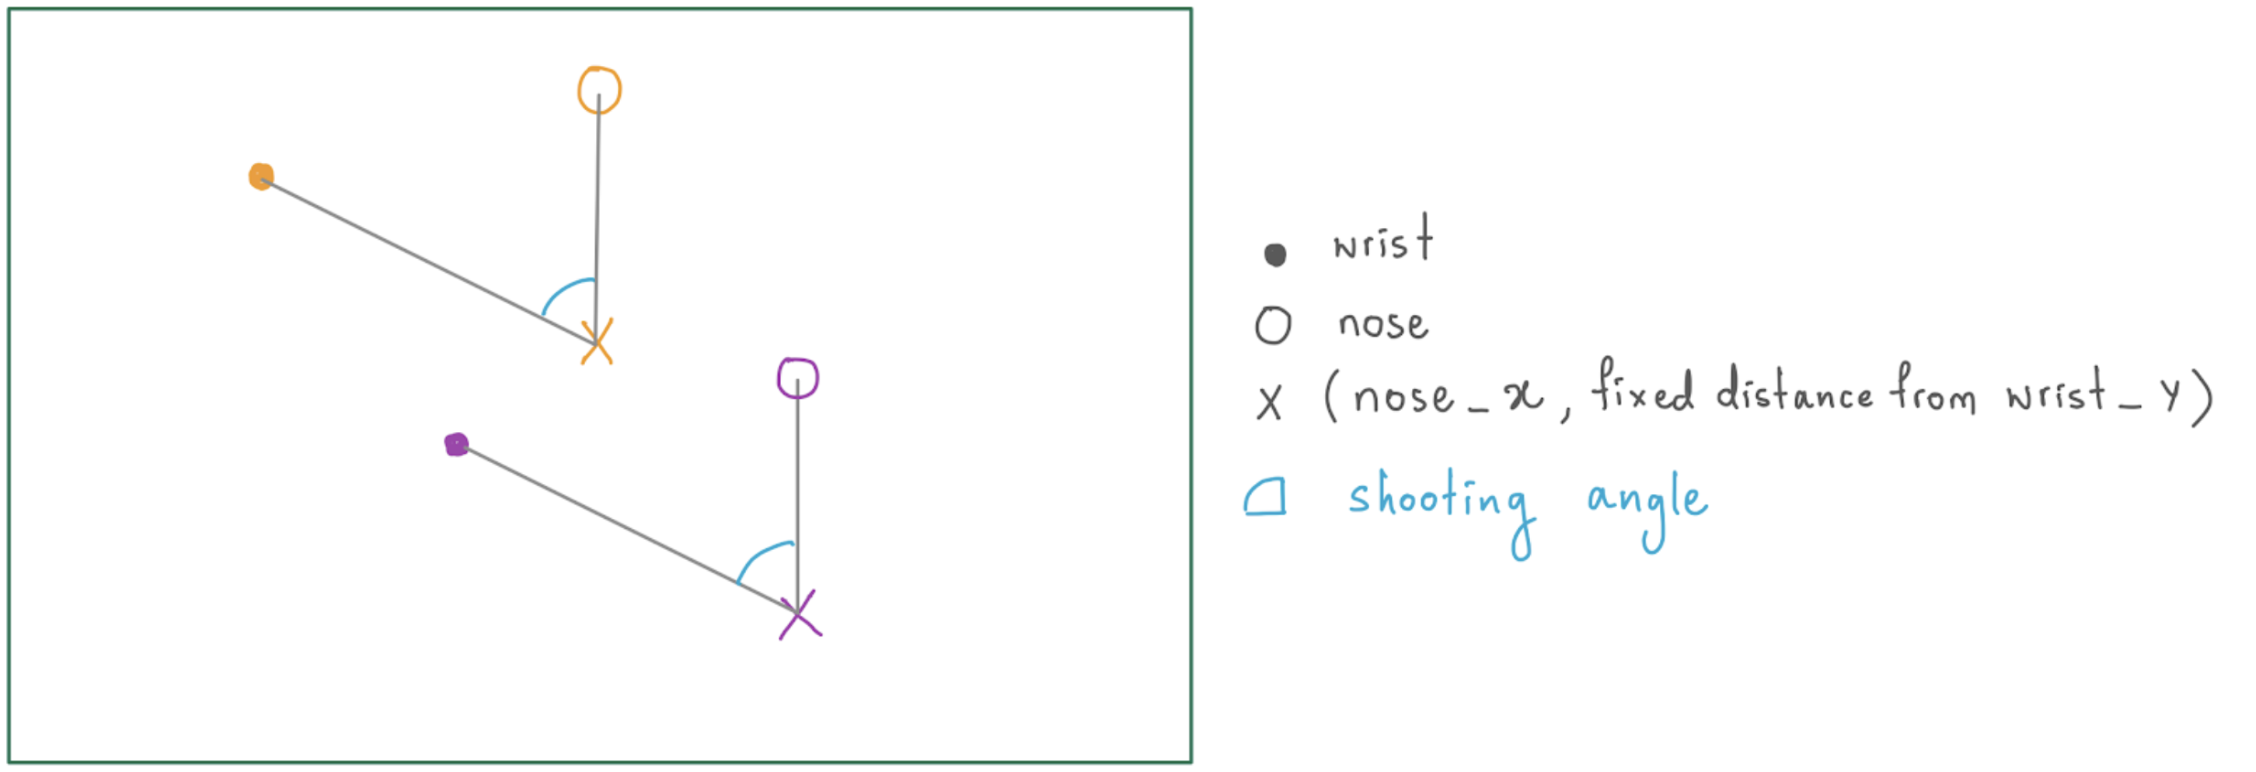 wrist
nose
x (nose_x, fixed distance from wrist_y)
shooting angle